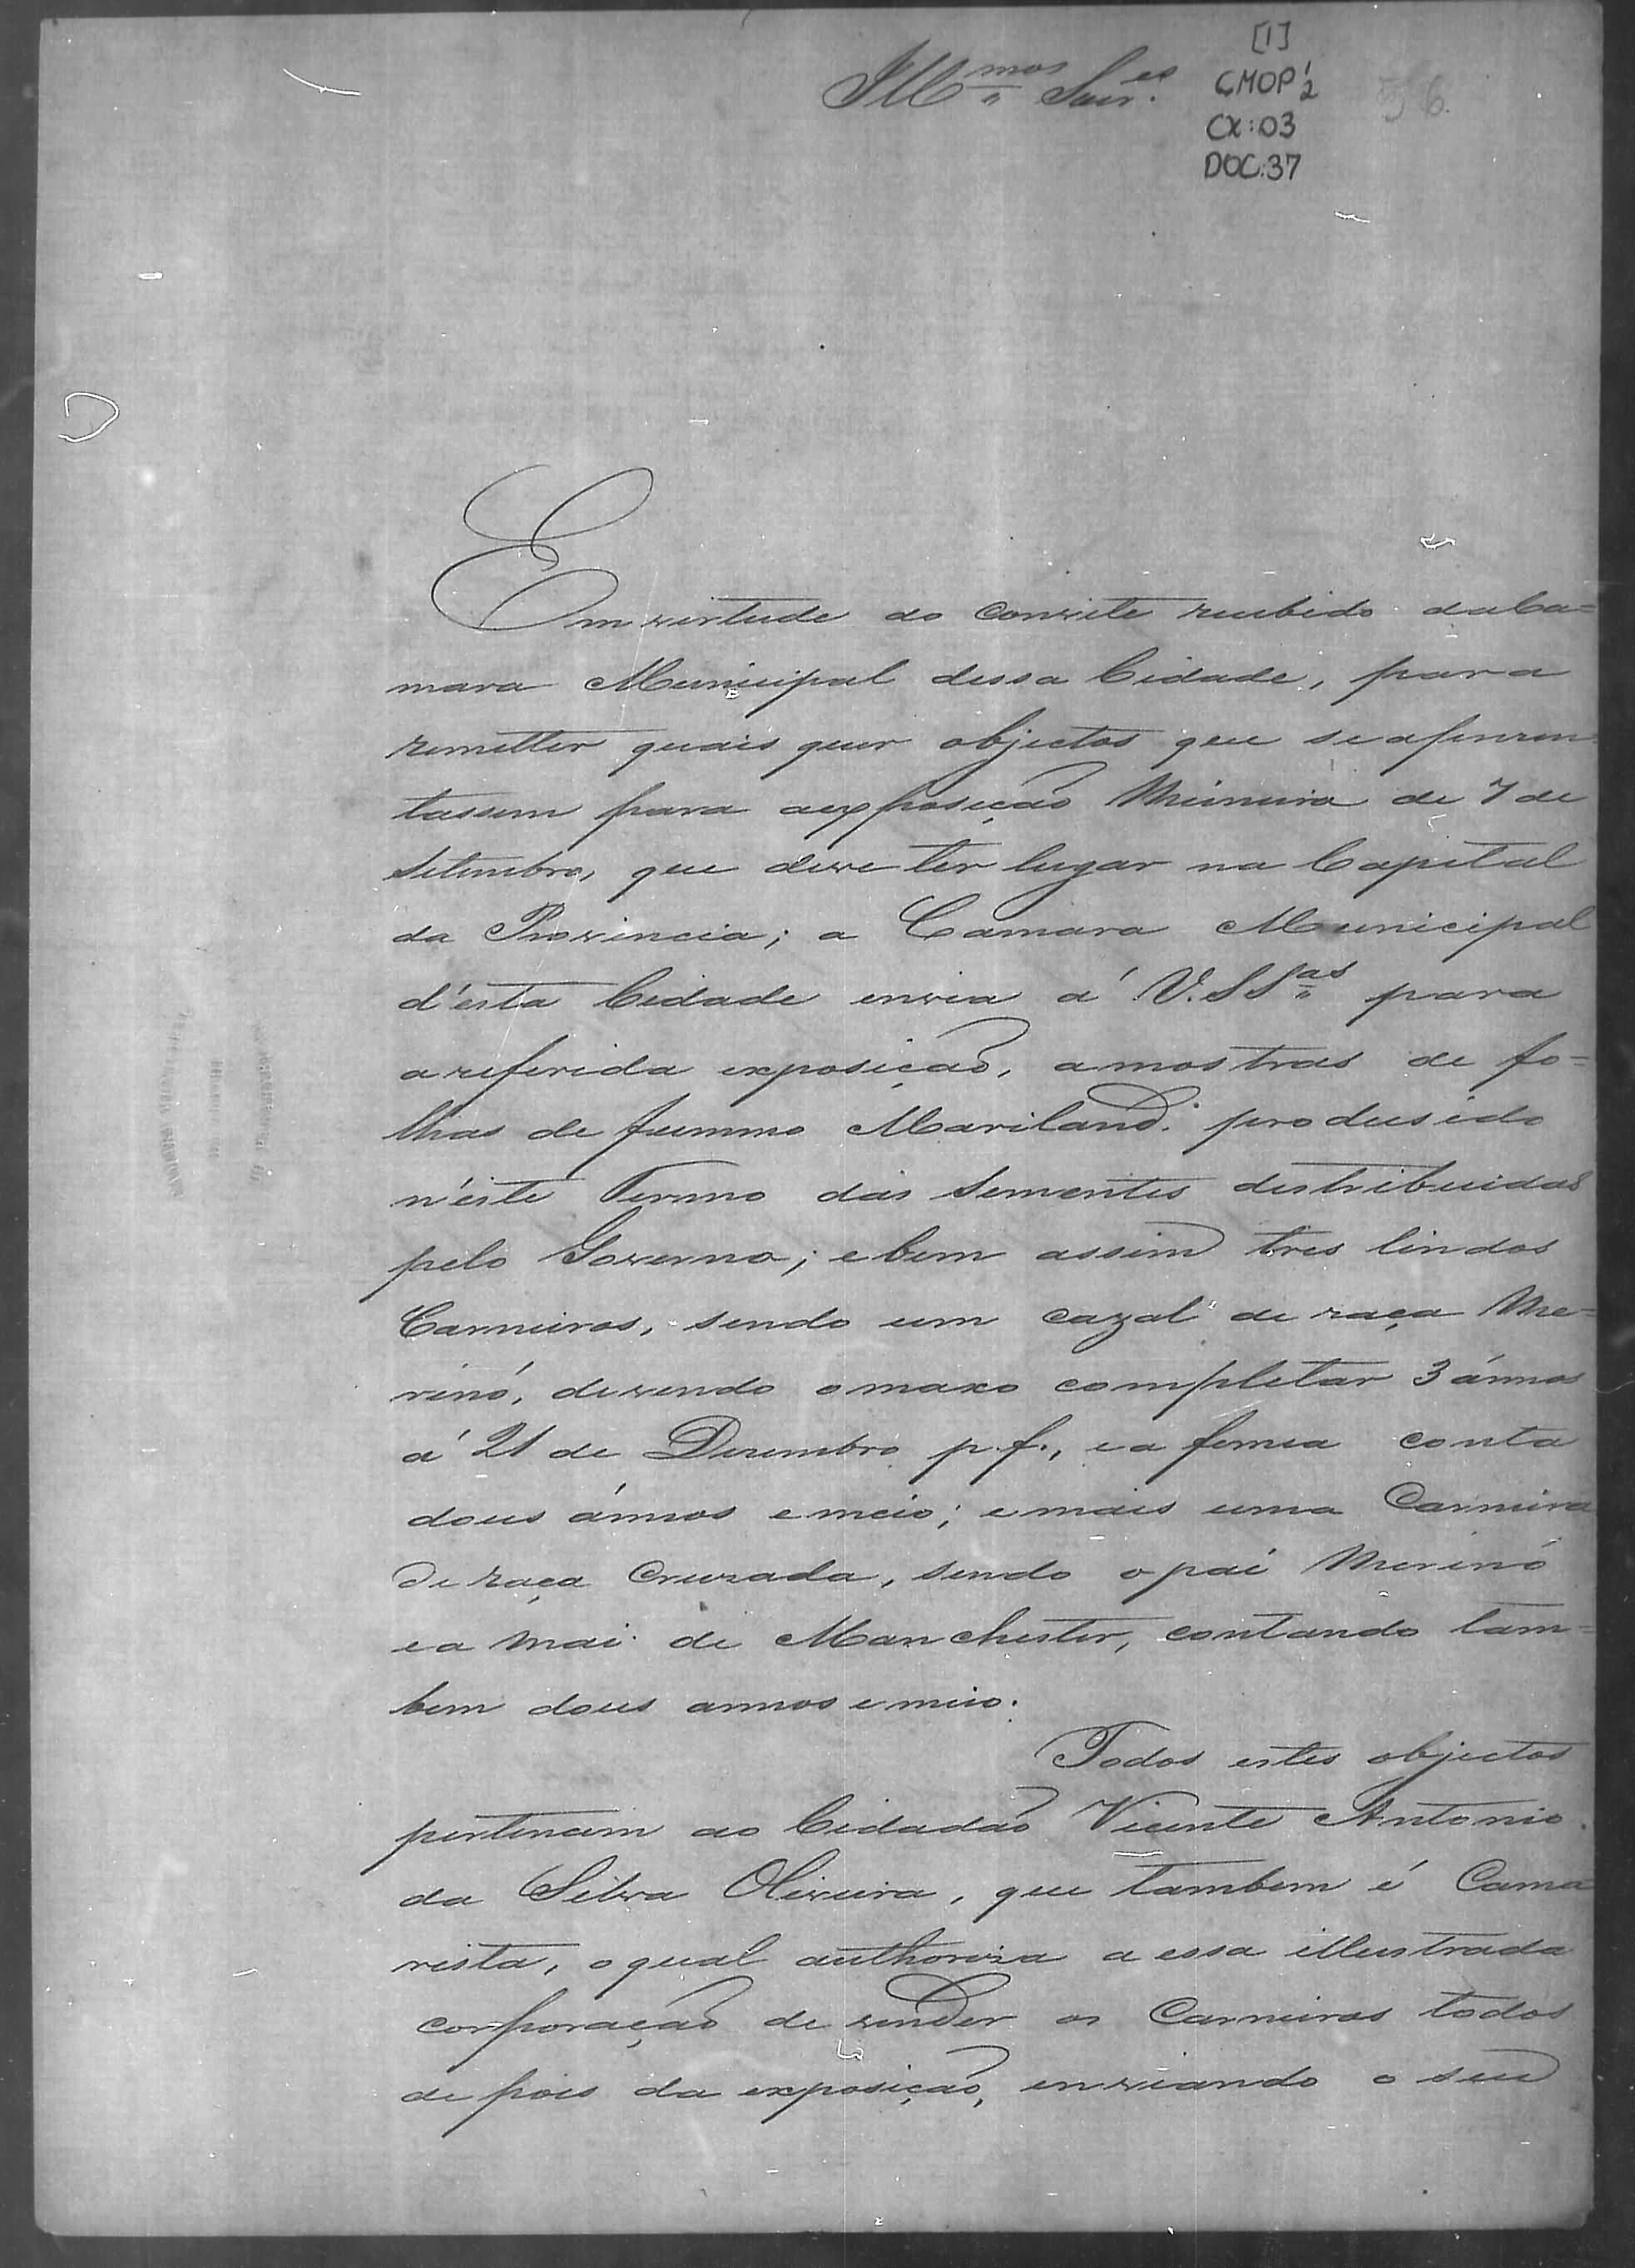 [1]
Ill.mos Snr.es
CMOP 1/2
CX:03
DOC:37
56.
Em virtude do convite recebido da Ca=
mara Municipal dessa Cidade, para
remetter quais quer objectos que se aprezen
tassem para a exposição Mineira de 7 de
Setembro, que deve ter lugar na Capital
da Provincia; a Camara Municipal
d'esta Cidade envia á V.SS.as para
a referida exposição, amostras de fo=
lhas de fummo Mariland. produsido
n'este Termo das Sementes destribuidas
pelo Governo; e bem assim tres lindos
Carneiros, sendo um cazal de raça Me=
rinó, devendo o maxo completar 3 ánnos
á 21 de Dezembro p.f., e a femea conta
dous ánnos e meio; e mais uma Carneira
de raça Cruzada, sendo o pai Merinó
e a Mai de Manchester, contando tam=
bem dous annos e meio.
Todos estes objectos
pertencem ao Cidadão Vicente Antonio
da Silva Oliveira, que tambem é Cama
rista, o qual authoriza a essa illustrada
corporação de vender os Carneiros todos
de pois da exposição, enviando o seu